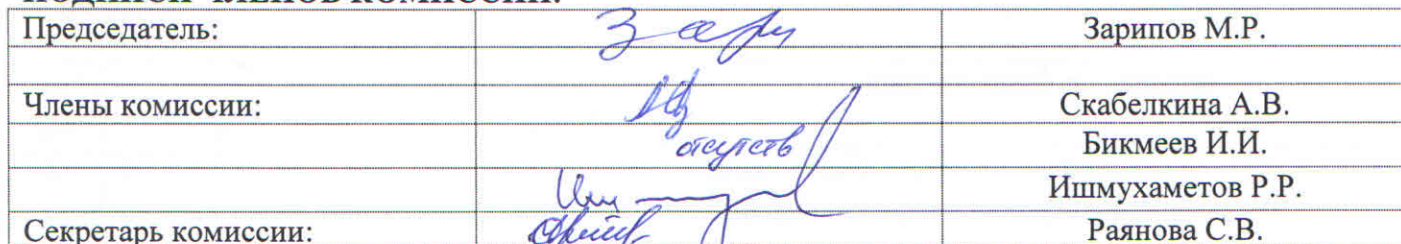 ПОДПИСИ ЧЛЕНОВ КОМИССИИ:
Председатель: Зарипов М.Р.
Члены комиссии: Скабелкина А.В.
отсутств Бикмеев И.И.
Ишмухаметов Р.Р.
Секретарь комиссии: Раянова С.В.